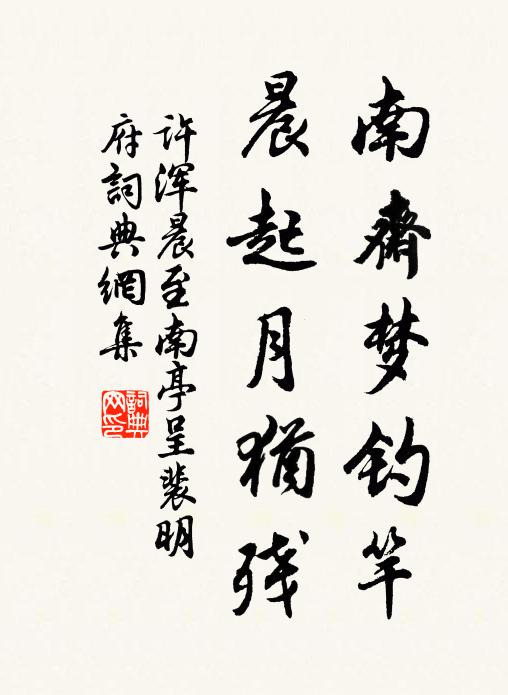 南齋梦钓竿
晨起月猶残
许浑晨至南亭呈裴明
府詞典網集
詞典
网印